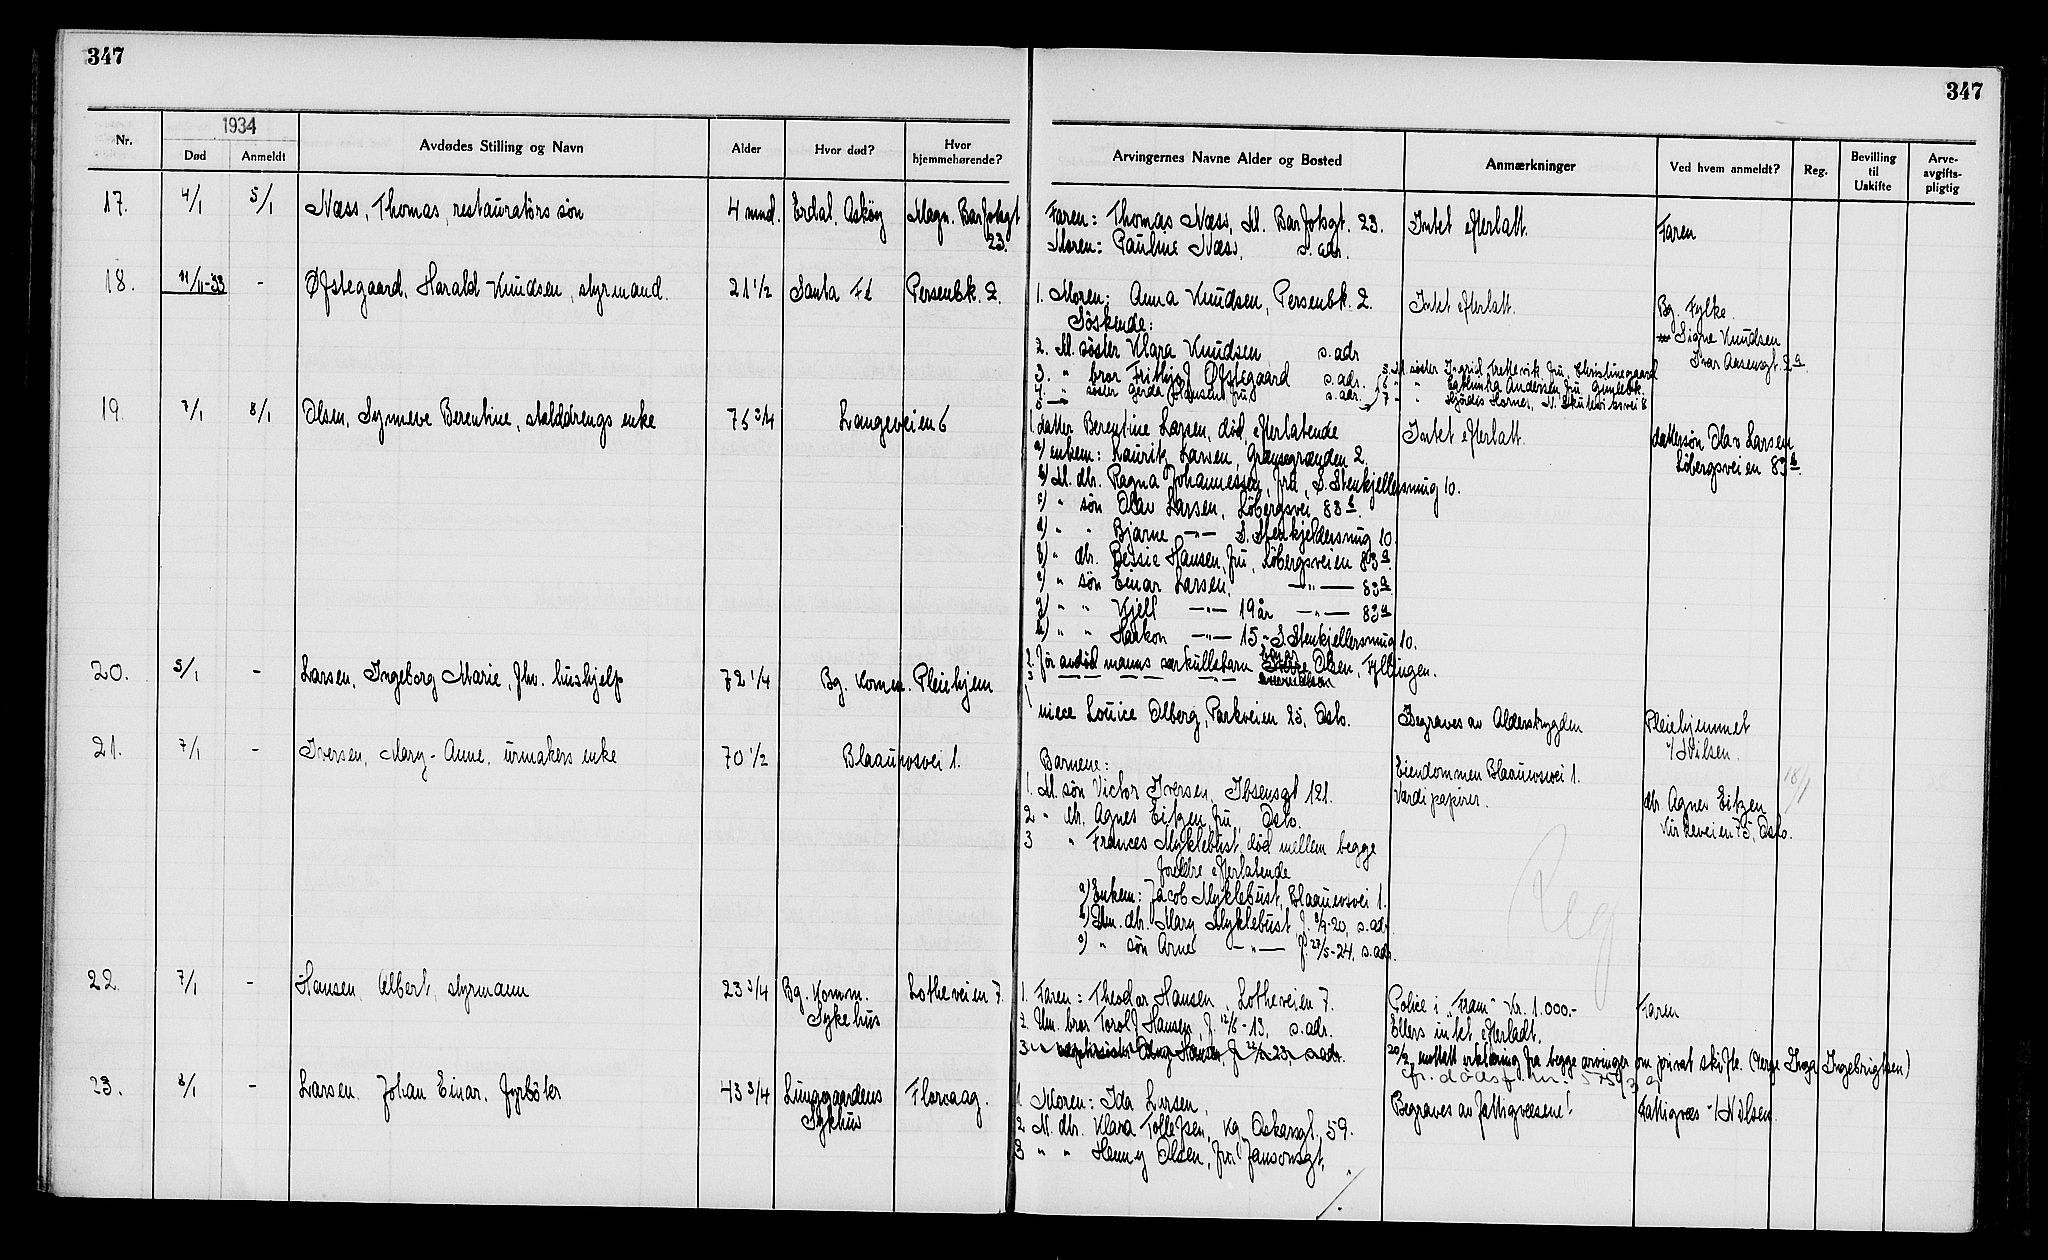 347
347
1934
Nr.
Død
Anmeldt
Avdødes Stilling og Navn
Alder
Hvor død?
Hvor hjemmehørende?
Arvingernes Navne Alder og Bosted
Anmærkninger
Ved hvem anmeldt?
Reg.
Bevilling til Uskifte
Arve-avgifts-pligtig
17. 4/1 5/1 Næss, Thomas, restauratørs søn 4 mnd. Erdal, Askøy Magn. Barfotsgt 23.
Faren: Thomas Næss, M. Barfotsgt. 23. Intet efterlatt. Faren
Moren: Pauline Næss, s. adr.
18. 11/11-33 - Øfstegaard, Harald Knudsen, styrmand. 21 1/2 Santa Fé Persenbk. 2.
1. Moren: Anna Knudsen, Persenbk. 2. Intet efterlatt. Bg. Fylke.
Søskende: Signe Knudsen
2. M. søster Klara Knudsen s. adr Ivar Aasensgt. 2a
3. " bror Frithjof Øfstegaard s. adr.
4. " søster Gerda Hansen fru s. adr.
5 M søster Ingrid fru, Christinegaard
6 " " Andersen fru
7 " " Hjørdis
19. 7/1 8/1 Olsen, Synneve Berentine, stalddrengs enke 75 3/4 Langeveien 6
1. datter Berentine Larsen, død, efterlatende Intet efterlatt. dattersøn Olav Larsen
a) enkem: Laurits Larsen, Grænsegrænden 2. Løbergsveien 83b.
b) M. dtr. Ragna Johannessen, fru, S. Stenkjellersmug 10.
c) " søn Olav Larsen, Løbergsvei 83b.
d) " " Bjarne -"- S. Stenkjeldersmug 10.
" dtr. Bessie Hansen, fru, Løbergsveien 83a.
" søn Einar Larsen, -"- 83a
g) " " Kjell -"- 19 år -"- 83a
h) " " Haakon -"- 15 - S Stenkjellersmug 10.
2. for avdød manns særkullsbarn Olsen, Fyllingen.
20. 5/1 - Larsen, Ingeborg Marie, fhv. hushjelp 72 1/4 Bg. Komm. Pleiehjem
niece Louice Olberg, Parkveien 25, Oslo. Begraves av Alderstrygden Pleiehjemmet
v/ Nilsen.
21. 7/1 - Iversen, Mary-Anne, urmakers enke 70 1/2 Blaauwsvei 1.
Barnene: Eiendommen Blaauwsvei 1.
1. M. søn Victor Iversen, Ibsensgt 121. Værdipapirer. 18/1
2 " dtr. Agnes Eitzen fru, Oslo. dtr. Agnes Eitzen
Kirkeveien 75, Oslo.
3 " Frances Myklebust, død mellem begge
foreldre efterlatende
a) Enkem: Jacob Myklebust, Blaauwsvei 1.
b) Um. dtr. Mary Myklebust f. 8/9-20, s. adr
c) " søn Arne -"- f. 27/5-24, s. adr.
Reg
22. 7/1 - Hansen, Albert, styrmann 23 3/4 Bg. Komm. Sykehus Lotheveien 7.
1. Faren: Theodor Hansen, Lotheveien 7. Police i "Fram" Kr. 1.000.- Faren
2. Um. bror Torolf Hansen, f. 12/6-13, s. adr. Ellers intet efterladt.
20/2 mottatt erklæring fra begge arvinger om privat skifte. (Verge Inga Ingebrigtsen)
23. 8/1 - Larsen, Johan Einar, fyrbøter 43 3/4 Lungegaardens Sykhus Florvaag.
1. Moren: Ida Larsen, Begraves av fattigvesenet! Fattigvæs v/ Nilsen.
2 M. dtr. Klara Tollefsen, Kg. Oskarsgt. 59.
3 " " Henny Olsen, fru Jansonsgt.